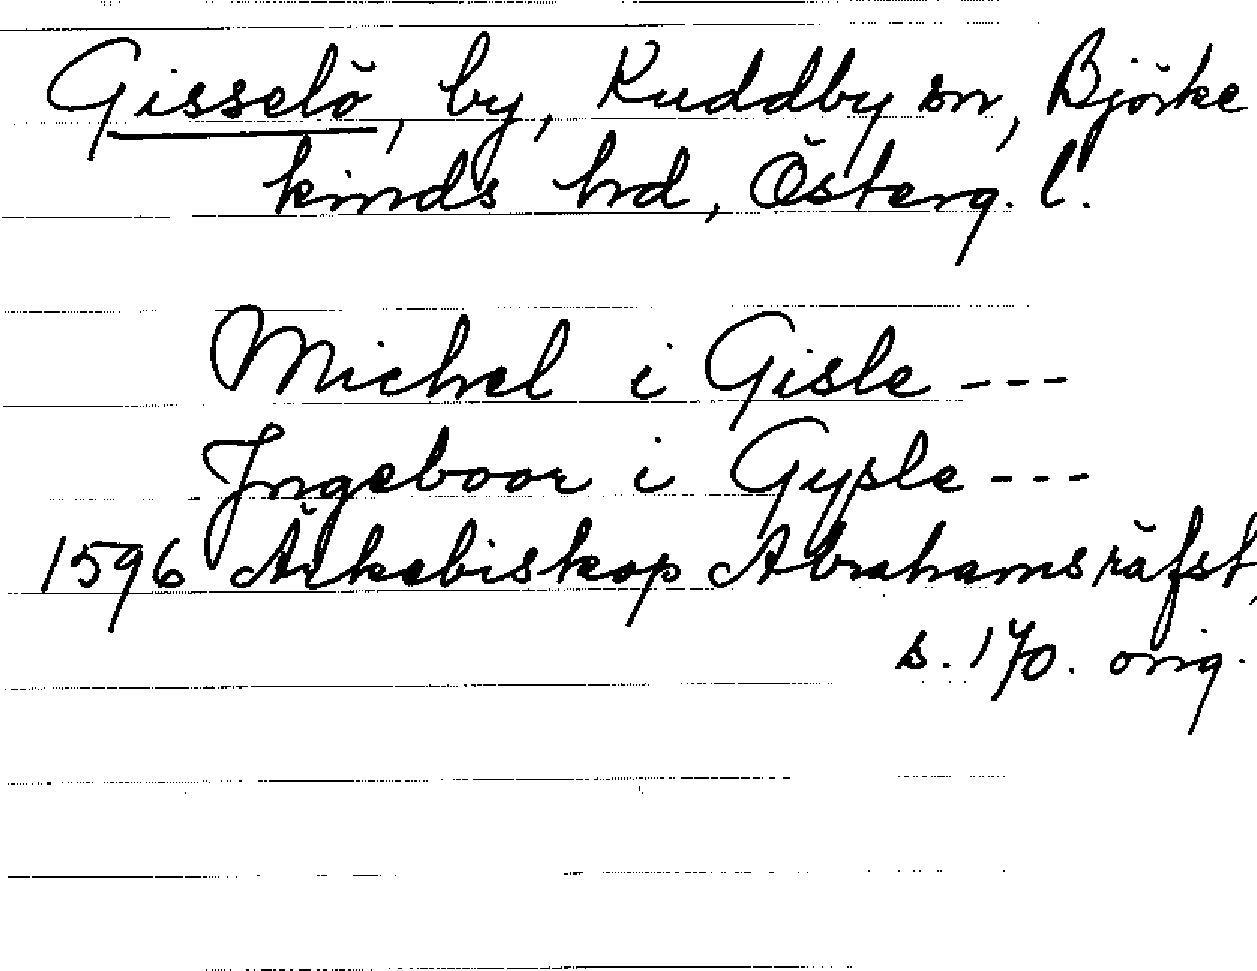 Gisselö, by, Kuddby sn, Björke
kinds hrd, Österg. l.
Michel i Gisle ---
Ingeboor i Gysle ---
1596 Ärkebiskop Abrahams räfst,
s. 170. orig.